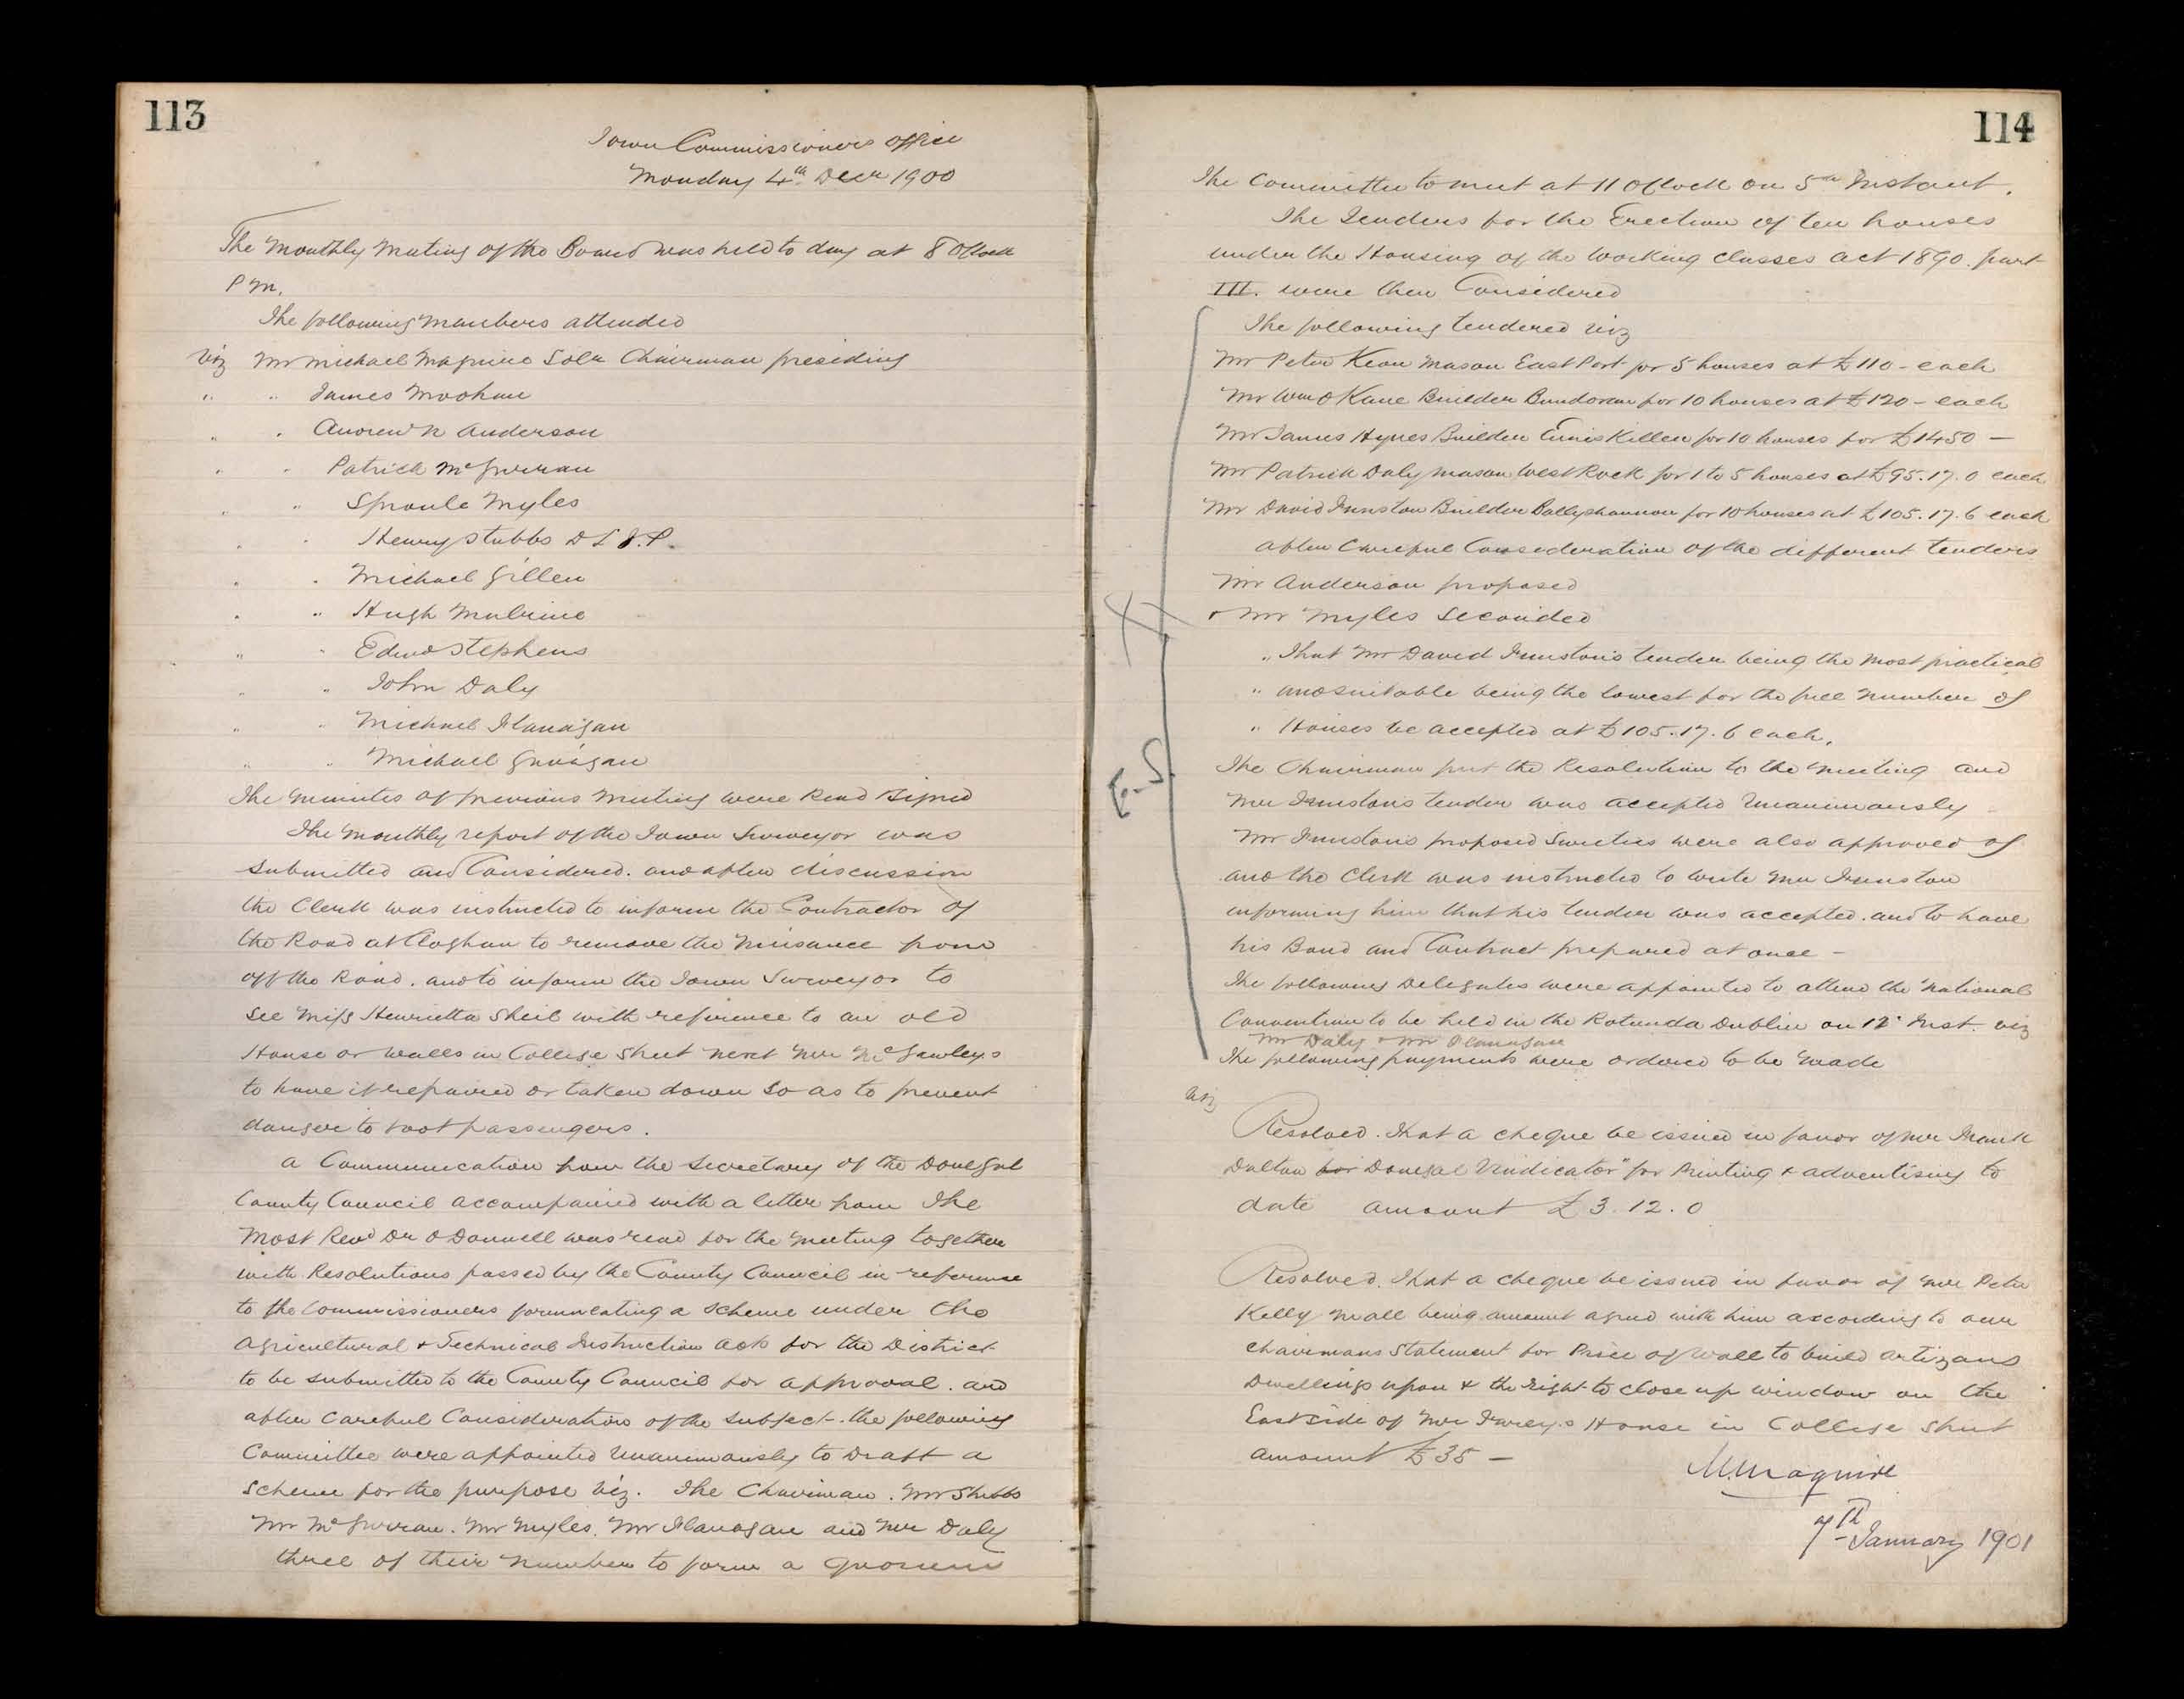 113
Town Commissioners office
Monday 4th Decr 1900
The Monthly Meeting of the Board was held to day at 8 OClock
P M.
The following Members attended
Viz Mr Michael Maguire Solr Chairman presiding
" " James Moohan
" " Andrew N Anderson
" " Patrick McGurran
" " Sproule Myles
" " Henry Stubbs D L J.P.
" " Michael Gillen
" " Hugh Mulrine
" " Edwd Stephens
" " John Daly
" " Michael Flanagan
" " Michael
The Minutes of previous Meeting were Read Signed
The Monthly report of the Town Surveyor was
submitted and Considered. and after discussion
the Clerk was instructed to inform the Contractor of
the Road at Cloghan to remove the Nuisance from
off the Road. and to inform the Town Surveyor to
see Miss Henrietta Sheil with reference to an old
House or walls in College Street next Mr McGawley's
to have it repaired or taken down so as to prevent
danger to foot passengers.
a Communication from the Secretary of the Donegal
County Council accompanied with a letter from The
Most Revd Dr O Donnell was read for the Meeting together
with Resolutions passed by the County Council in reference
to the Commissioners formulating a Scheme under the
Agricultural & Technical Instruction Act for the District
to be submitted to the County Council for approval. and
after Careful Consideration of the Subject. the following
Committee were appointed Unanimously to Draft a
Scheme for the purpose Viz. The Chairman. Mr Stubbs
Mr McGurran. Mr Myles. Mr Flanagan and Mr Daly
three of their Number to form a Quorum
114
The Committee to meet at 11 OClock on 5th Instant.
The Tenders for the Erection of ten houses
under the Housing of the Working Classes act 1890. part
III. were then Considered
The following tendered viz
Mr Peter Keon Mason East Port for 5 houses at £110 - each
Mr Wm O Kane Builder Bundoran for 10 houses at £120 - each
Mr James Hynes Builder Enniskillen for 10 houses for £1450 —
Mr Patrick Daly Mason West Rock for 1 to 5 houses at £95.17.0 each
Mr David Funston Builder Ballyshannon for 10 houses at £105.17.6 each
after Careful Consideration of the different tenders
Mr Anderson proposed
& Mr Myles Seconded
" That Mr David Funston's tender being the most practical
" and suitable being the lowest for the full Number of
" Houses be accepted at £105.17.6 each.
The Chairman put the Resolution to the Meeting and
Mr Funston's tender was accepted Unanimously
Mr Funston's proposed Sureties were also approved of
and the Clerk was instructed to write Mr Funston
informing him that his tender was accepted. and to have
his Bond and Contract prepared at once -
The following Delegates were appointed to attend the National
Convention to be held in the Rotunda Dublin on 12 Inst. viz
Mr Daly & Mr Flanagan
The following payments were ordered to be Made
Viz
Resolved. That a cheque be issued in favor of Mr Frank
Dalton for Donegal Vindicator" for Printing & advertising to
date amount £3.12.0
Resolved. That a cheque be issued in favor of Mr Peter
Kelly Mall being amount agreed with him according to our
Chairmans Statement for Price of Wall to build artizans
Dwellings upon & the right to close up window on the
East side of Mr House in College Street
amount £35 —
M. Maguire
7th January 1901
X
E.S.